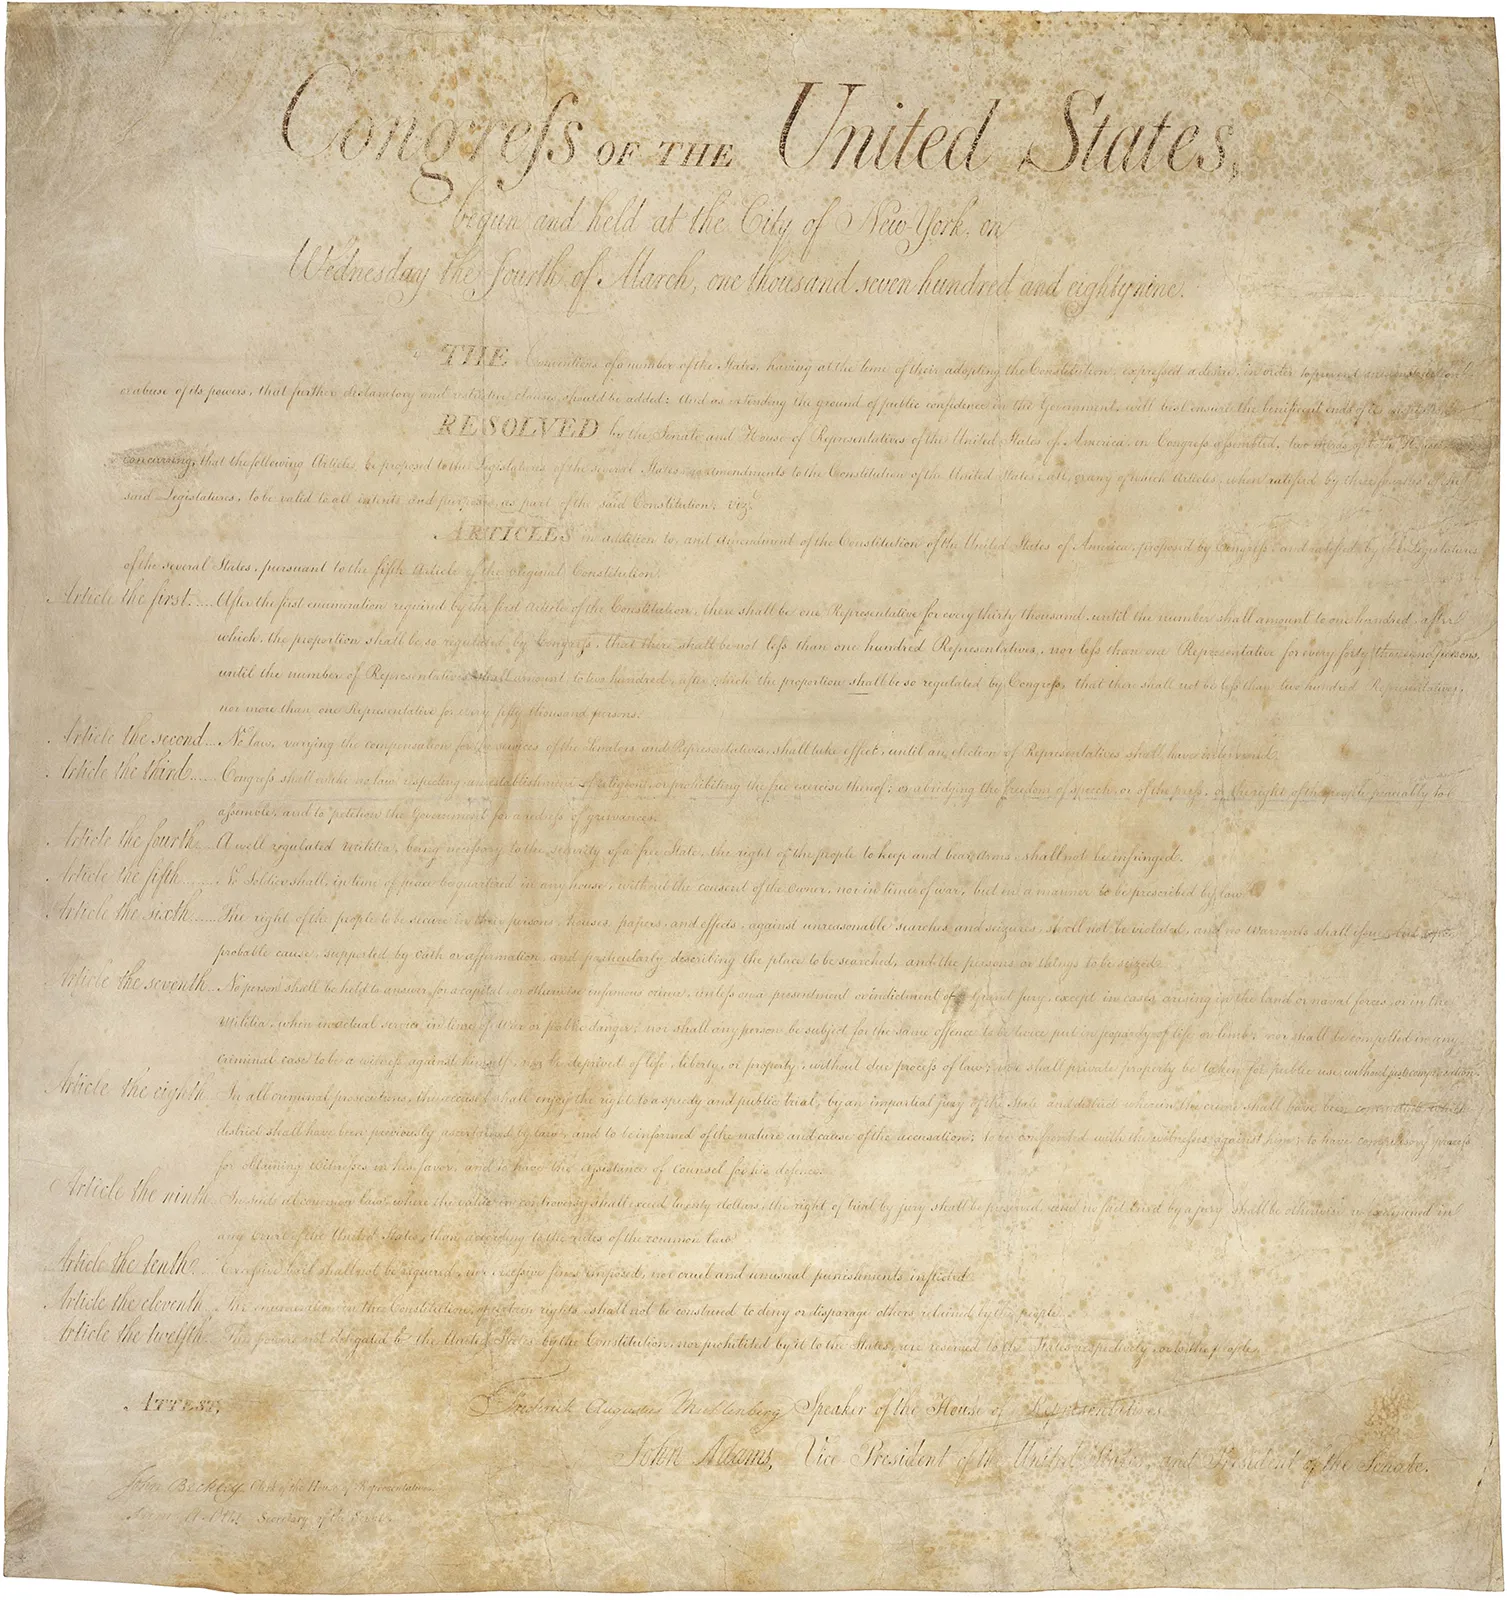 Congreſs OF THE United States,
begun and held at the City of New-York, on
Wednesday the fourth of March, one thousand seven hundred and eighty nine.
THE Conventions of a number of the States, having at the time of their adopting the Constitution, expressed a desire, in order to prevent misconstruction
or abuse of its powers, that further declaratory and restrictive clauses should be added: And as extending the ground of public confidence in the Government, will best ensure the beneficent ends of its
RESOLVED by the Senate and House of Representatives of the United States of America, in Congreſs aſsembled, two thirds of both Houses
concurring, that the following Articles be proposed to the Legislatures of the several States, as amendments to the Constitution of the United States, all, or any of which Articles, when ratified by three fourths of the
said Legislatures, to be valid to all intents and purposes, as part of the said Constitution; viz.t
ARTICLES in addition to, and Amendment of the Constitution of the United States of America, proposed by Congreſs, and ratified by the Legislatures
of the several States, pursuant to the fifth Article of the original Constitution.
Article the first..... After the first enumeration required by the first Article of the Constitution, there shall be one Representative for every thirty thousand, until the number shall amount to one hundred, after
which, the proportion shall be so regulated by Congreſs, that there shall be not leſs than one hundred Representatives, nor leſs than one Representative for every forty thousand persons,
until the number of Representatives shall amount to two hundred, after which the proportion shall be so regulated by Congreſs, that there shall not be leſs than two hundred Representatives,
nor more than one Representative for every fifty thousand persons.
Article the second... No law, varying the compensation for the services of the Senators and Representatives, shall take effect, until an election of Representatives shall have intervened.
Article the third...... Congreſs shall make no law respecting an establishment of religion, or prohibiting the free exercise thereof; or abridging the freedom of speech, or of the preſs, or the right of the people peaceably to
aſsemble, and to petition the Government for a redreſs of grievances.
Article the fourth.. A well regulated Militia, being neceſsary to the security of a free State, the right of the people to keep and bear Arms, shall not be infringed.
Article the fifth....... No Soldier shall, in time of peace be quartered in any house, without the consent of the Owner, nor in time of war, but in a manner to be prescribed by law.
Article the sixth...... The right of the people to be secure in their persons, houses, papers, and effects, against unreasonable searches and seizures, shall not be violated, and no Warrants shall iſsue, but upon
probable cause, supported by Oath or affirmation, and particularly describing the place to be searched, and the persons or things to be seized.
Article the seventh.. No person shall be held to answer for a capital, or otherwise infamous crime, unleſs on a presentment or indictment of a Grand Jury, except in cases arising in the land or naval forces, or in the
Militia, when in actual service in time of War or public danger; nor shall any person be subject for the same offence to be twice put in jeopardy of life or limb; nor shall be compelled in any
criminal case to be a witneſs against himself, nor be deprived of life, liberty, or property, without due proceſs of law; nor shall private property be taken for public use, without just compensation.
Article the eighth.. In all criminal prosecutions, the accused shall enjoy the right to a speedy and public trial, by an impartial jury of the State and district wherein the crime shall have been committed, which
district shall have been previously ascertained by law, and to be informed of the nature and cause of the accusation; to be confronted with the witneſses against him; to have compulsory proceſs
for obtaining witneſses in his favor, and to have the aſsistance of counsel for his defence.
Article the ninth.. In suits at common law, where the value in controversy shall exceed twenty dollars, the right of trial by jury shall be preserved, and no fact tried by a jury, shall be otherwise re-examined in
any Court of the United States, than according to the rules of the common law.
Article the tenth.. Exceſsive bail shall not be required, nor exceſsive fines imposed, nor cruel and unusual punishments inflicted.
Article the eleventh. The enumeration in the Constitution, of certain rights, shall not be construed to deny or disparage others retained by the people.
Article the twelfth. The powers not delegated to the United States by the Constitution, nor prohibited by it to the States, are reserved to the States respectively, or to the people.
ATTEST,
Frederick Augustus Muhlenberg Speaker of the House of Representatives.
John Adams, Vice President of the United States, and President of the Senate.
John Beckley, Clerk of the House of Representatives.
Secretary of the Senate.